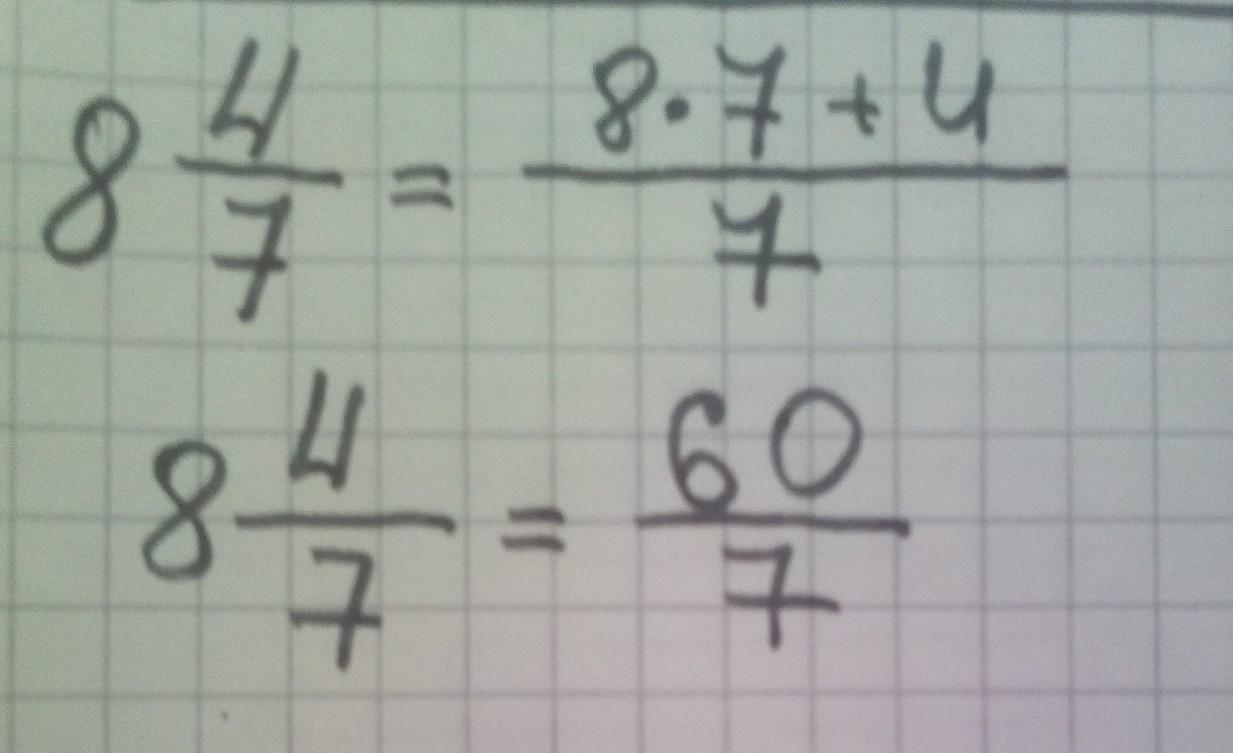 8 4/7 = (8·7+4)/7
8 4/7 = 60/7